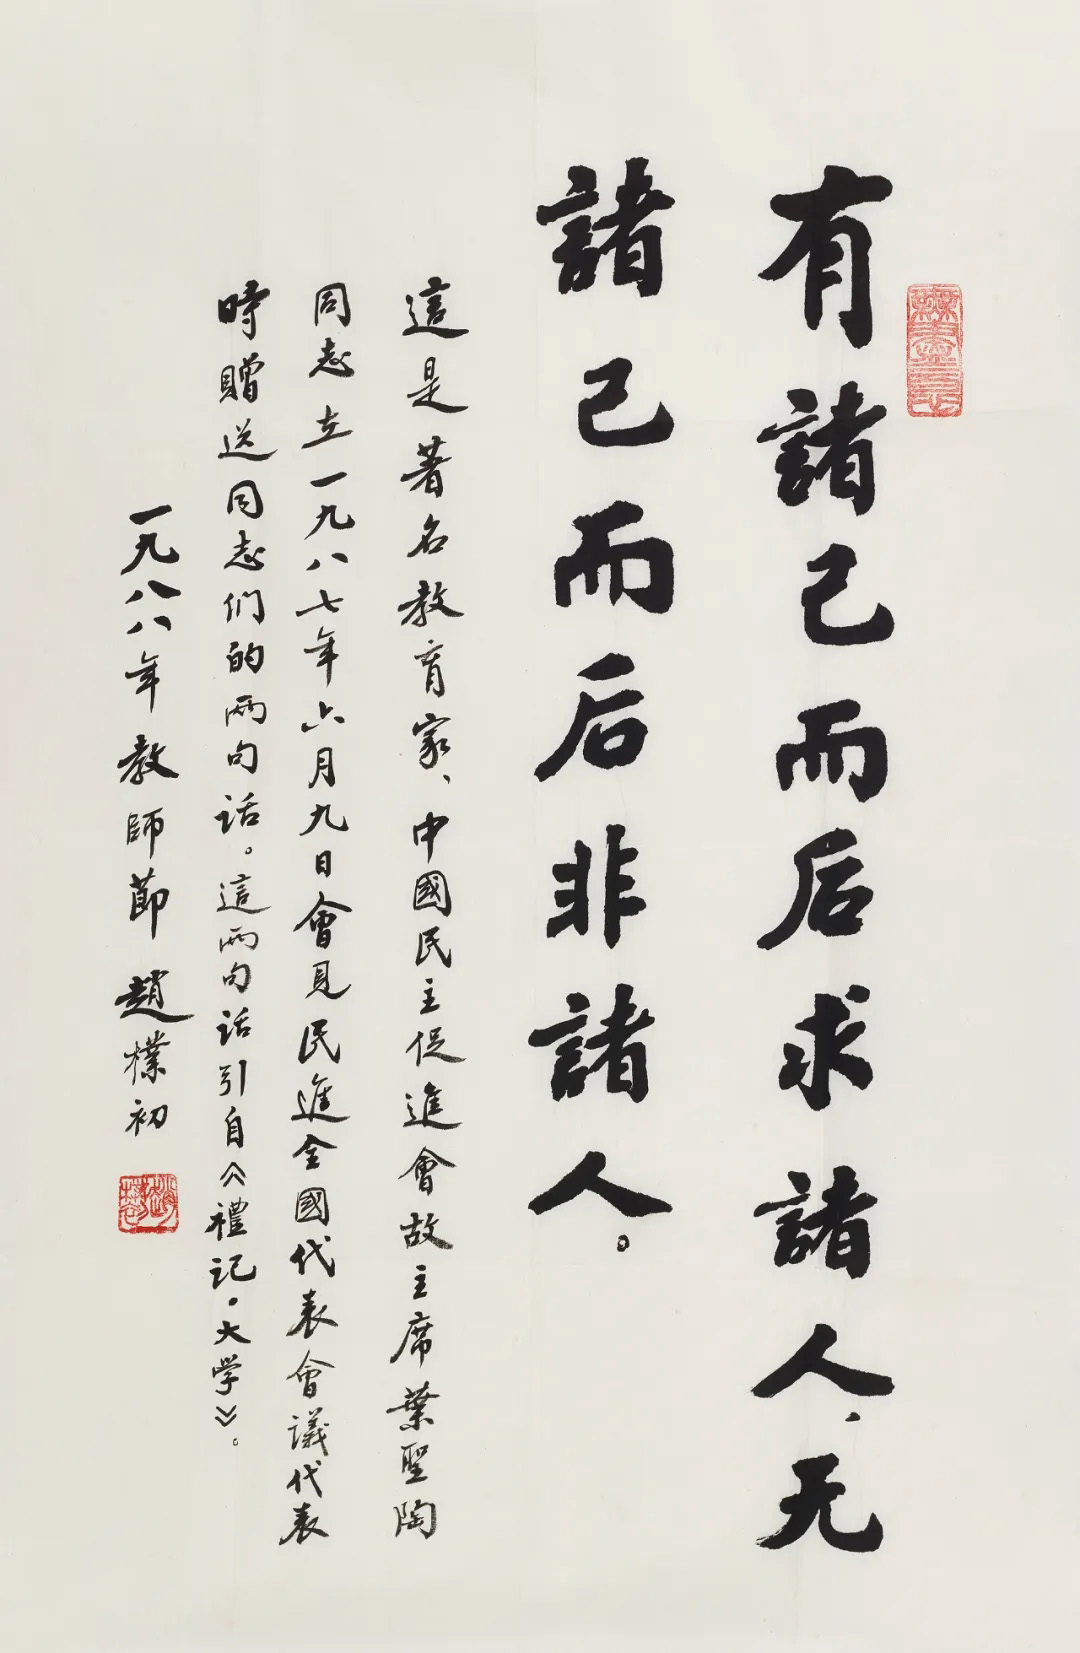 有諸己而后求諸人、无
諸己而后非諸人。
這是著名教育家、中國民主促進會故主席葉聖陶
同志在一九八七年六月九日會見民進全國代表會議代表
時贈送同志们的两句话。這两句话引自《禮記。大学》。
一九八八年教師節 趙樸初